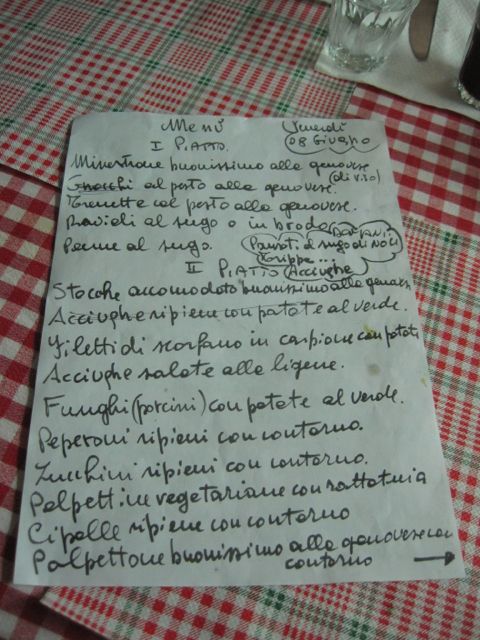 Menù Venerdì
I PIATTO. 08 Giugno
Minestrone buonissimo alla genovese
(di riso)
Gnocchi al pesto alla genovese.
Trenette al pesto alla genovese.
Ravioli al sugo o in brodo
Penne al sugo. Pansoti al sugo di NOCI
Trippe...
II PIATTO Acciughe
Stocche accomodato buonissimo alla genovese
Acciughe ripiene con patate al verde.
Filetti di scorfano in carpione con patate
Acciughe salate alla ligure.
Funghi (porcini) con patate al verde.
Peperoni ripieni con contorno.
Zucchini ripieni con contorno.
Polpettine vegetariane con rattatuia
Cipolle ripiene con contorno
Polpettone buonissimo alla genovese con
contorno →